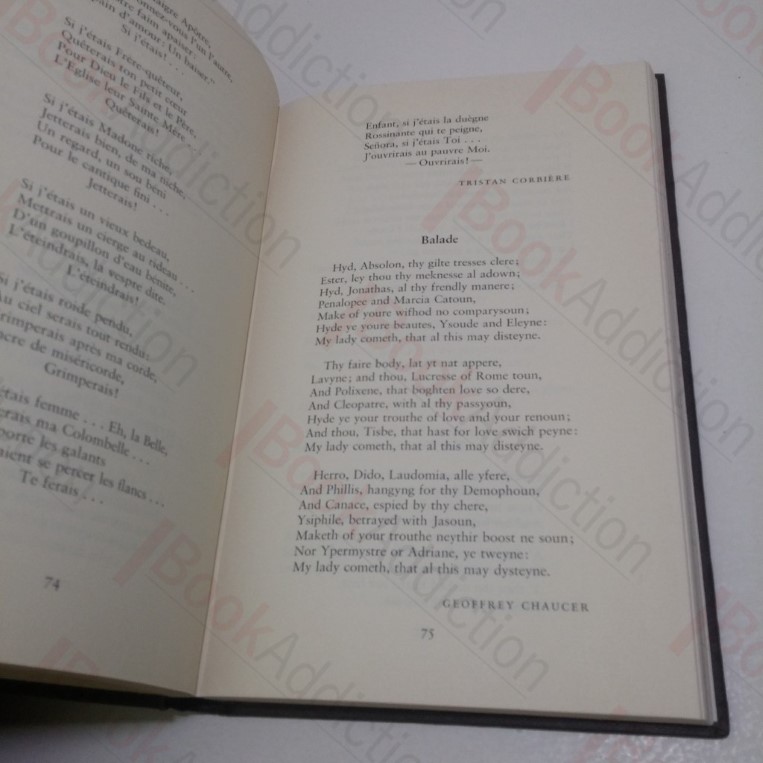 aigre Apôtre,
onnez-vous l'un l'autre,
tre faim apaiser:
pain d'amour: Un baiser."
Si j'étais! . . .
Si j'étais Frère-quêteur,
Quêterais ton petit cœur
Pour Dieu le Fils et le Père,
L'Eglise leur Sainte Mère . . .
Quêterais!
Si j'étais Madone riche,
Jetterais bien, de ma niche,
Un regard, un sou béni
Pour le cantique fini . . .
Jetterais!
Si j'étais un vieux bedeau,
Mettrais un cierge au rideau . . .
D'un goupillon d'eau bénite,
L'éteindrais, la vespre dite,
L'éteindrais!
Si j'étais roide pendu,
Au ciel serais tout rendu:
Grimperais après ma corde,
ncre de miséricorde,
Grimperais!
étais femme . . . Eh, la Belle,
erais ma Colombelle . . .
porte les galants
aient se percer les flancs . . .
Te ferais . . .
74
Enfant, si j'étais la duègne
Rossinante qui te peigne,
Señora, si j'étais Toi . . .
J'ouvrirais au pauvre Moi.
—Ouvrirais!—
TRISTAN CORBIÈRE
Balade
Hyd, Absolon, thy gilte tresses clere;
Ester, ley thou thy meknesse al adown;
Hyd, Jonathas, al thy frendly manere;
Penalopee and Marcia Catoun,
Make of youre wifhod no comparysoun;
Hyde ye youre beautes, Ysoude and Eleyne:
My lady cometh, that al this may disteyne.
Thy faire body, lat yt nat appere,
Lavyne; and thou, Lucresse of Rome toun,
And Polixene, that boghten love so dere,
And Cleopatre, with al thy passyoun,
Hyde ye your trouthe of love and your renoun;
And thou, Tisbe, that hast for love swich peyne:
My lady cometh, that al this may disteyne.
Herro, Dido, Laudomia, alle yfere,
And Phillis, hangyng for thy Demophoun,
And Canace, espied by thy chere,
Ysiphile, betrayed with Jasoun,
Maketh of your trouthe neythir boost ne soun;
Nor Ypermystre or Adriane, ye tweyne:
My lady cometh, that al this may dysteyne.
GEOFFREY CHAUCER
75